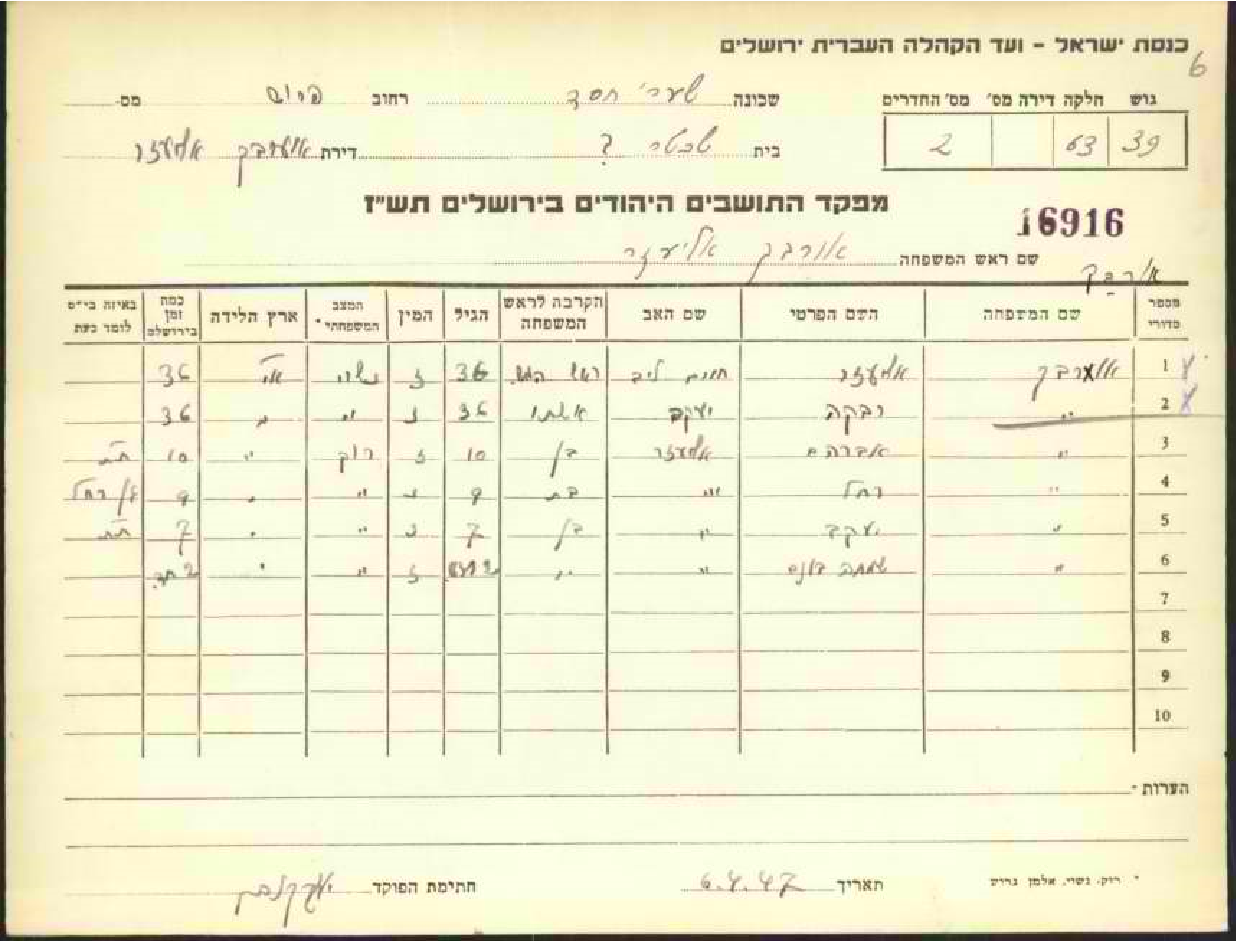 כנסת ישראל – ועד הקהלה העברית ירושלים
6
גוש חלקה דירה מס' מס' החדרים
39 63 2
שכונה שערי חסד רחוב מס-
בית דירת אוערבך אלעזר
מפקד התושבים היהודים בירושלים תש"ז
16916
שם ראש המשפחה אורבך אליעזר
אורבך
מספר סדורי שם המשפחה השם הפרטי שם האב הקרבה לראש המשפחה הגיל המין המצב המשפחתי* ארץ הלידה כמה זמן בירושלם באיזה בי"ס לומד כעת
1 אוערבך אלעזר חיים ליב ראש המש. 36 ז נשוי א"י 36
2 " רבקה יעקב אשתו 36 נ " " 36
3 " אברהם אלעזר בן 10 ז רוק " 10 ת"ת
4 " רחל " בת 9 נ " " 9
5 " יעקב " בן 7 ז " " 7 ת"ת
6 " שמחה בונם " " ז " "
7
8
9
10
הערות -
* רוק, נשוי, אלמן גרוש תאריך 6.4.47 חתימת הפוקד